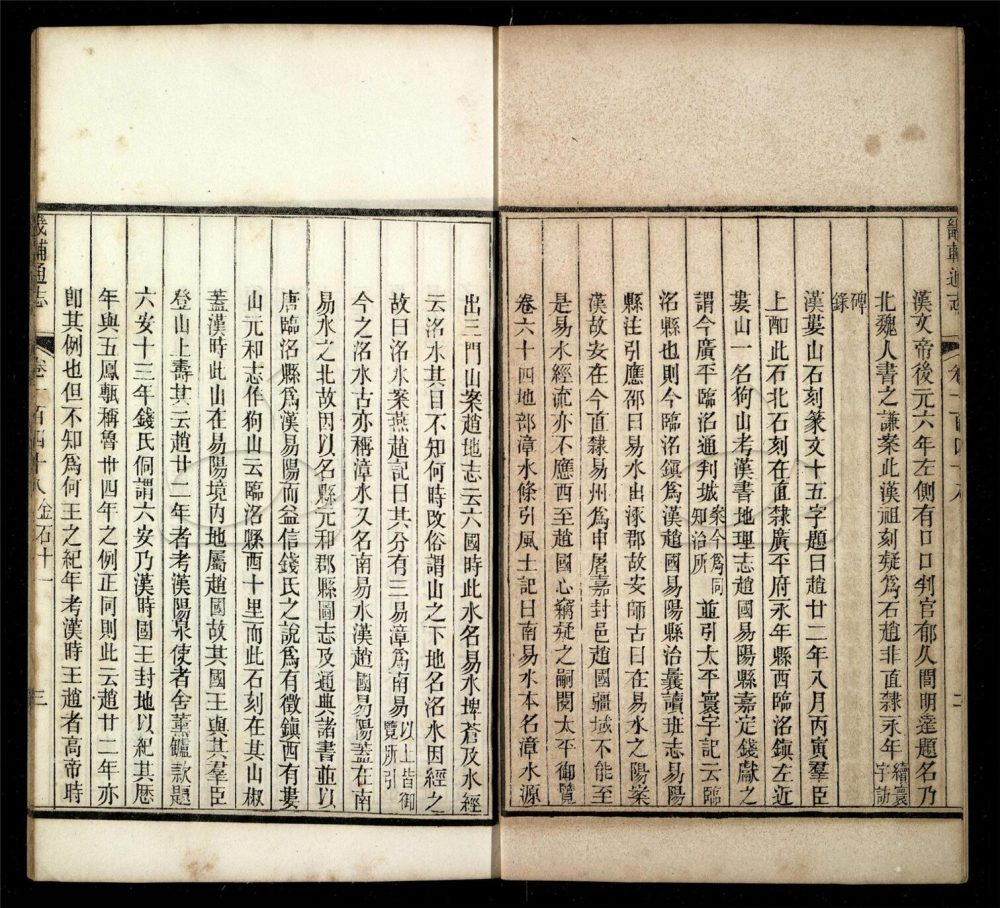 畿輔通志
卷一百四十八
二
漢文帝後元六年左側有口口判官郁久閭明達題名乃
北魏人書之謙案此漢祖刻疑爲石趙非直隸永年續寰宇訪
碑
錄
漢婁山石刻篆文十五字題曰趙廿二年八月丙寅羣臣
上酬此石北石刻在直隸廣平府永年縣西臨洺鎮左近
婁山一名狗山考漢書地理志趙國易陽縣嘉定錢獻之
謂今廣平臨洺通判城案今爲同知治所並引太平寰宇記云臨
洺縣也則今臨洺鎮爲漢趙國易陽縣治曩讀班志易陽
縣注引應邵曰易水出涿郡故安師古曰在易水之陽案
漢故安在今直隸易州爲申屠嘉封邑趙國疆域不能至
是易水經流亦不應西至趙國心竊疑之嗣閱太平御覽
卷六十四地部漳水條引風土記曰南易水本名漳水源
出三門山案趙地志云六國時此水名易水埤蒼及水經
云洺水其目不知何時改俗謂山之下地名洺水因經之
故曰洺水案燕趙記曰其分有三易漳爲南易以上皆御覽所引
今之洺水古亦稱漳水又名南易水漢趙國易陽蓋在南
易水之北故因以名縣元和郡縣圖志及通典諸書並以
唐臨洺縣爲漢易陽而益信錢氏之說爲有徵鎮西有婁
山元和志作狗山云臨洺縣西十里而此石刻在其山椒
蓋漢時此山在易陽境內地屬趙國故其國王與其羣臣
登山上壽其云趙廿二年者考漢陽泉使者舍薰鑪款題
六安十三年錢氏侗謂六安乃漢時國王封地以紀其歷
年與五鳳甎稱魯卅四年之例正同則此云趙廿二年亦
卽其例也但不知爲何王之紀年考漢時王趙者高帝時
畿輔通志
卷一百四十八 金石十一
三